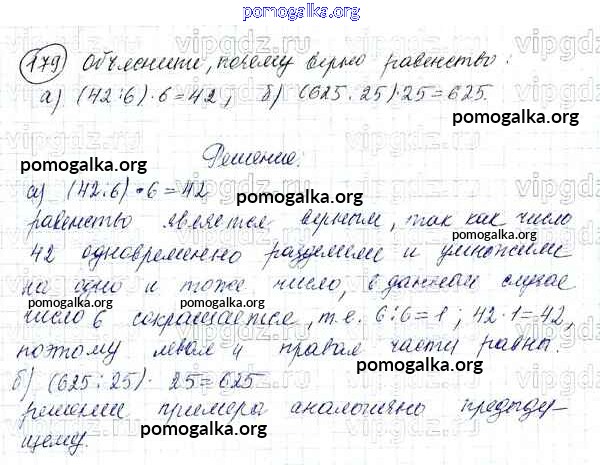 pomogalka.org
179 Объясните, почему верно равенство:
а) (42:6)·6=42; б) (625:25)·25=625.
pomogalka.org
Решение:
pomogalka.org
а) (42:6)·6=42
pomogalka.org
равенство является верным, так как число
42 одновременно разделили и умножили
на одно и тоже число, в данный случае
pomogalka.org pomogalka.org
число 6 сокращается, т.е. 6:6=1; 42·1=42,
pomogalka.org
поэтому левая и правая части равны.
pomogalka.org
б) (625:25)·25=625
pomogalka.org
решении примера аналогично предыду-
щему.
pomogalka.org
pomogalka.org